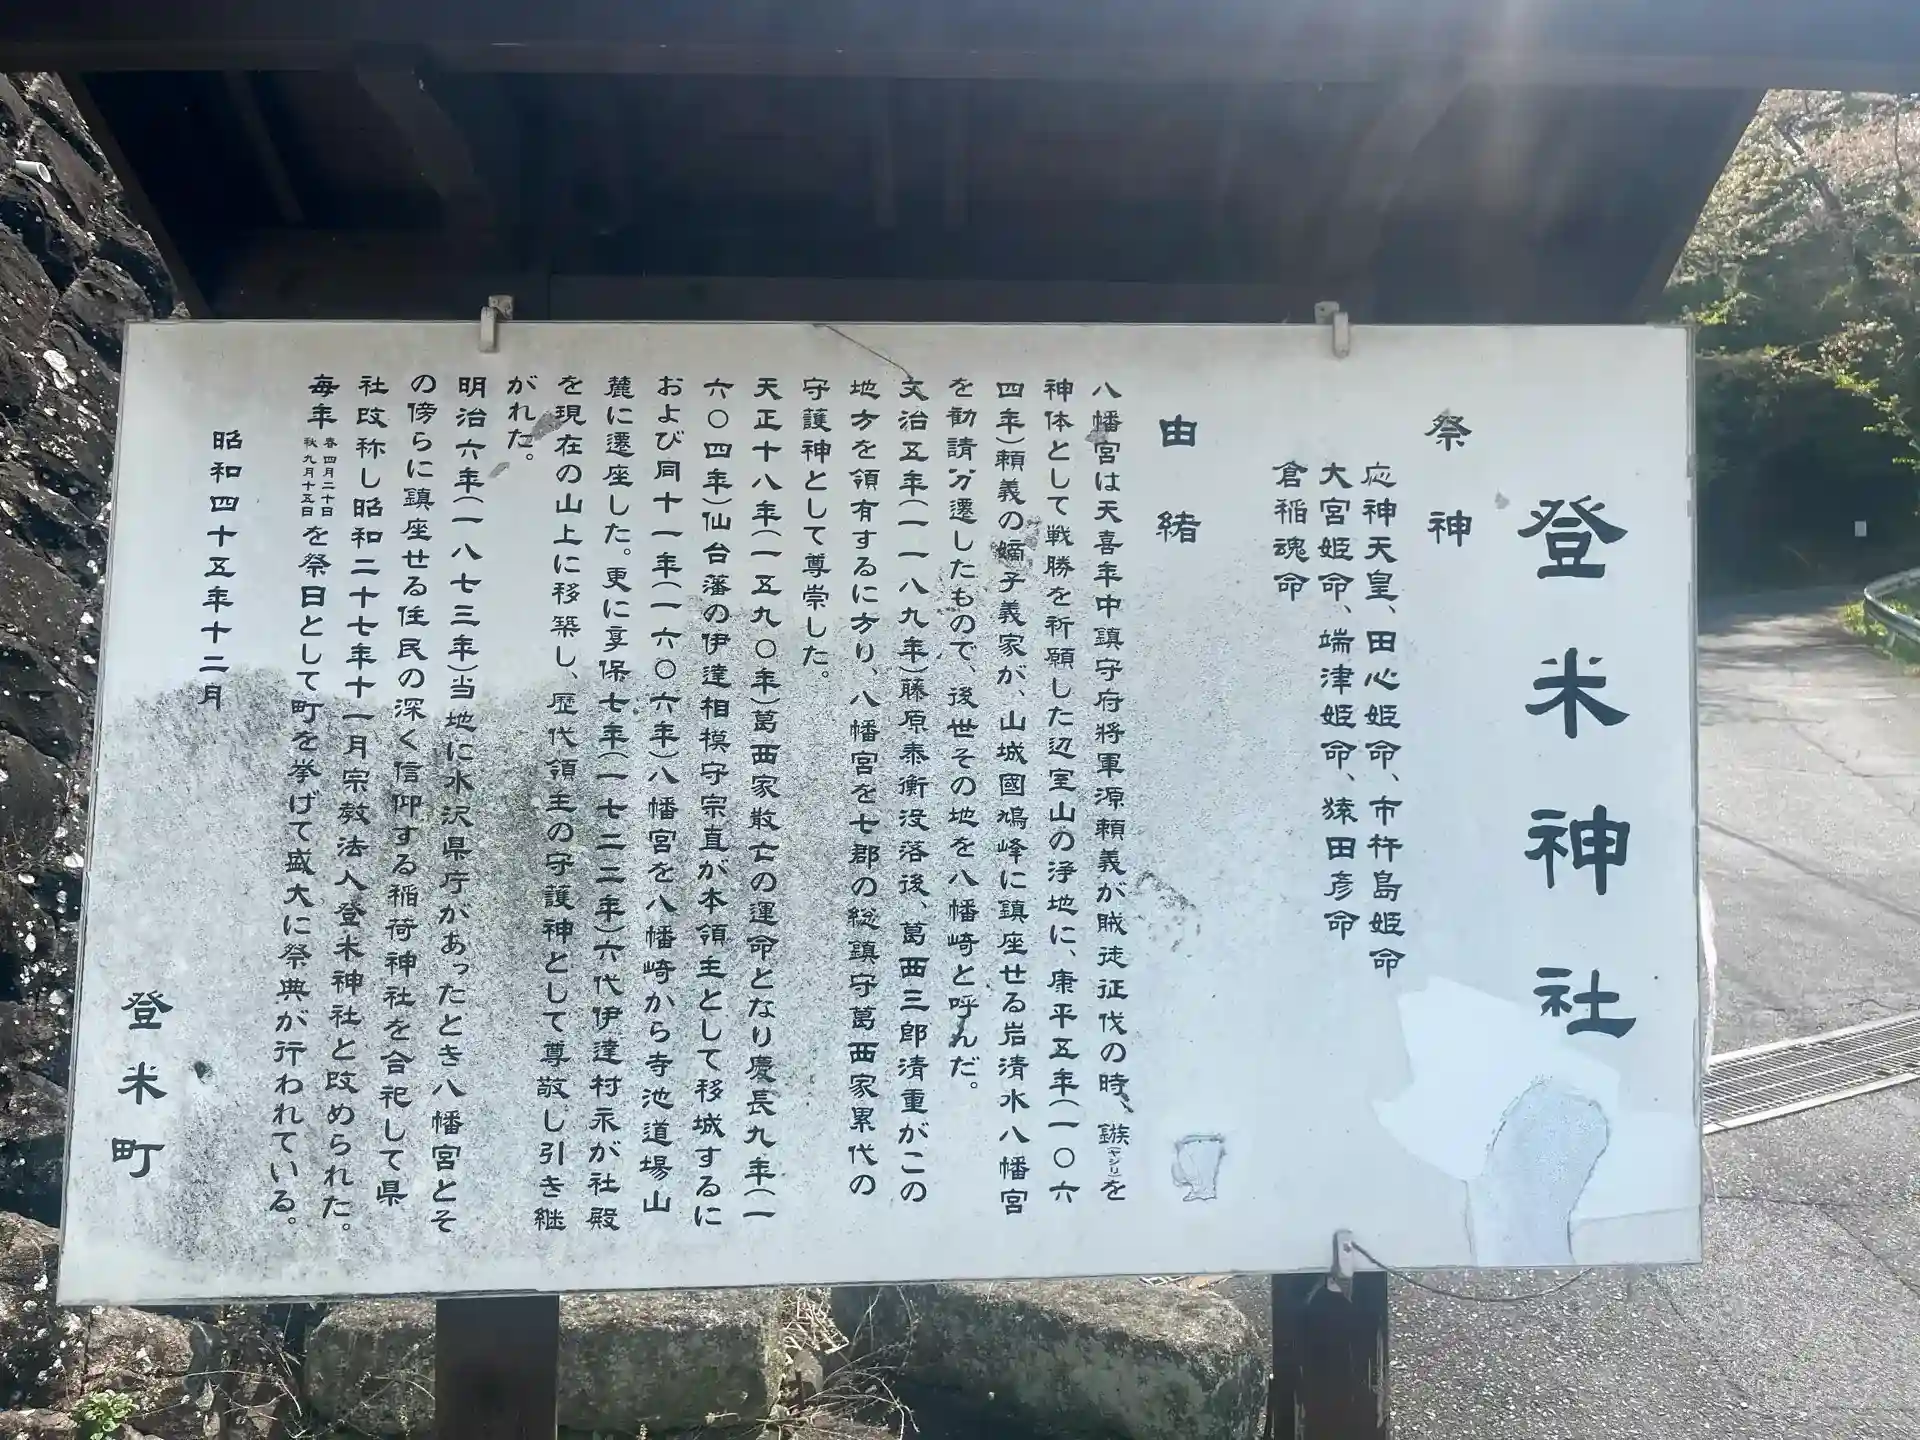 登米神社
祭神
応神天皇、田心姫命、市杵島姫命
大宮姫命、端津姫命、猿田彦命
倉稲魂命
由緒
八幡宮は天喜年中鎮守府将軍源頼義が賊徒征伐の時、鏃(ヤジリ)を
神体として戦勝を祈願した辺室山の浄地に、康平五年(一〇六
四年)頼義の嫡子義家が、山城國鳩峰に鎮座せる岩清水八幡宮
を勧請分遷したもので、後世その地を八幡崎と呼んだ。
文治五年(一一八九年)藤原泰衡没落後、葛西三郎清重がこの
地方を領有するに方り、八幡宮を七郡の総鎮守葛西家累代の
守護神として尊崇した。
天正十八年(一五九〇年)葛西家散亡の運命となり慶長九年(一
六〇四年)仙台藩の伊達相模守宗直が本領主として移城するに
および同十一年(一六〇六年)八幡宮を八幡崎から寺池道場山
麓に遷座した。更に享保七年(一七二二年)六代伊達村永が社殿
を現在の山上に移築し、歴代領主の守護神として尊敬し引き継
がれた。
明治六年(一八七三年)当地に水沢県庁があったとき八幡宮とそ
の傍らに鎮座せる住民の深く信仰する稲荷神社を合祀して県
社改称し昭和二十七年十一月宗教法人登米神社と改められた。
毎年春四月二十日秋九月十五日を祭日として町を挙げて盛大に祭典が行われている。
昭和四十五年十二月
登米町